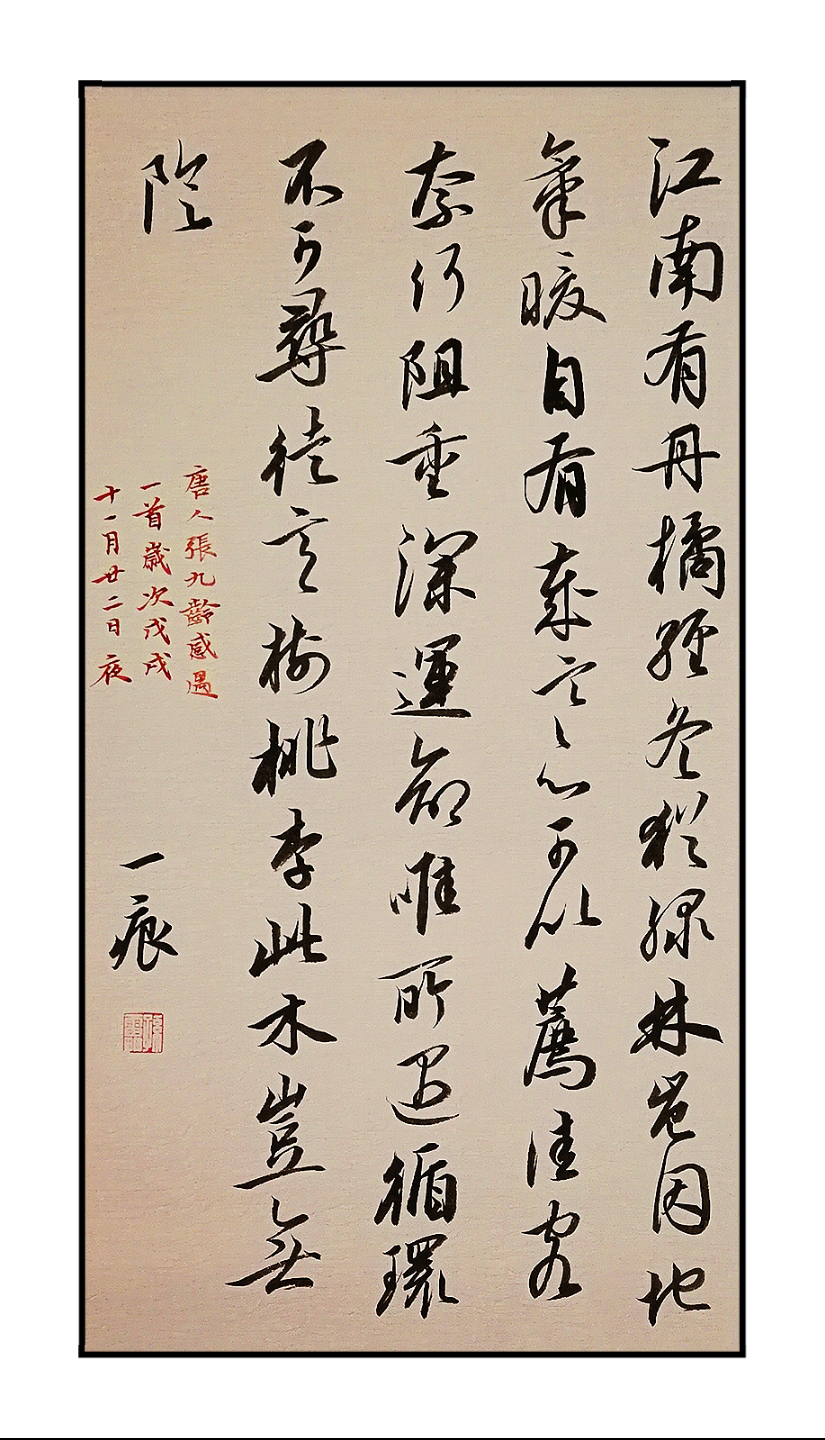 江南有丹橘經冬猶綠林豈因地
氣暖自有歲寒心可以薦佳客
奈何阻重深運命唯所遇循環
不可尋徒言樹桃李此木豈無
陰
唐人張九齡感遇
一首歲次戊戌
十一月廿二日夜
一痕